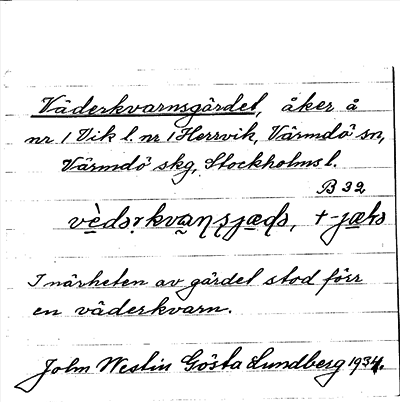 Väderkvarnsgärdet, åker å
nr 1 Vik l. nr 1 Herrvik, Värmdö sn,
Värmdö skg, Stockholms l.
B 32
I närheten av gärdet stod förr
en väderkvarn.
John Westin Gösta Lundberg 1934.